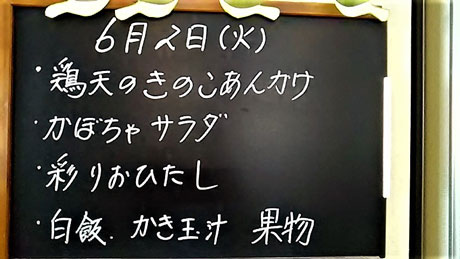 6月2日(火)
・鶏天のきのこあんかけ
・かぼちゃサラダ
・彩りおひたし
・白飯.かき玉汁 果物